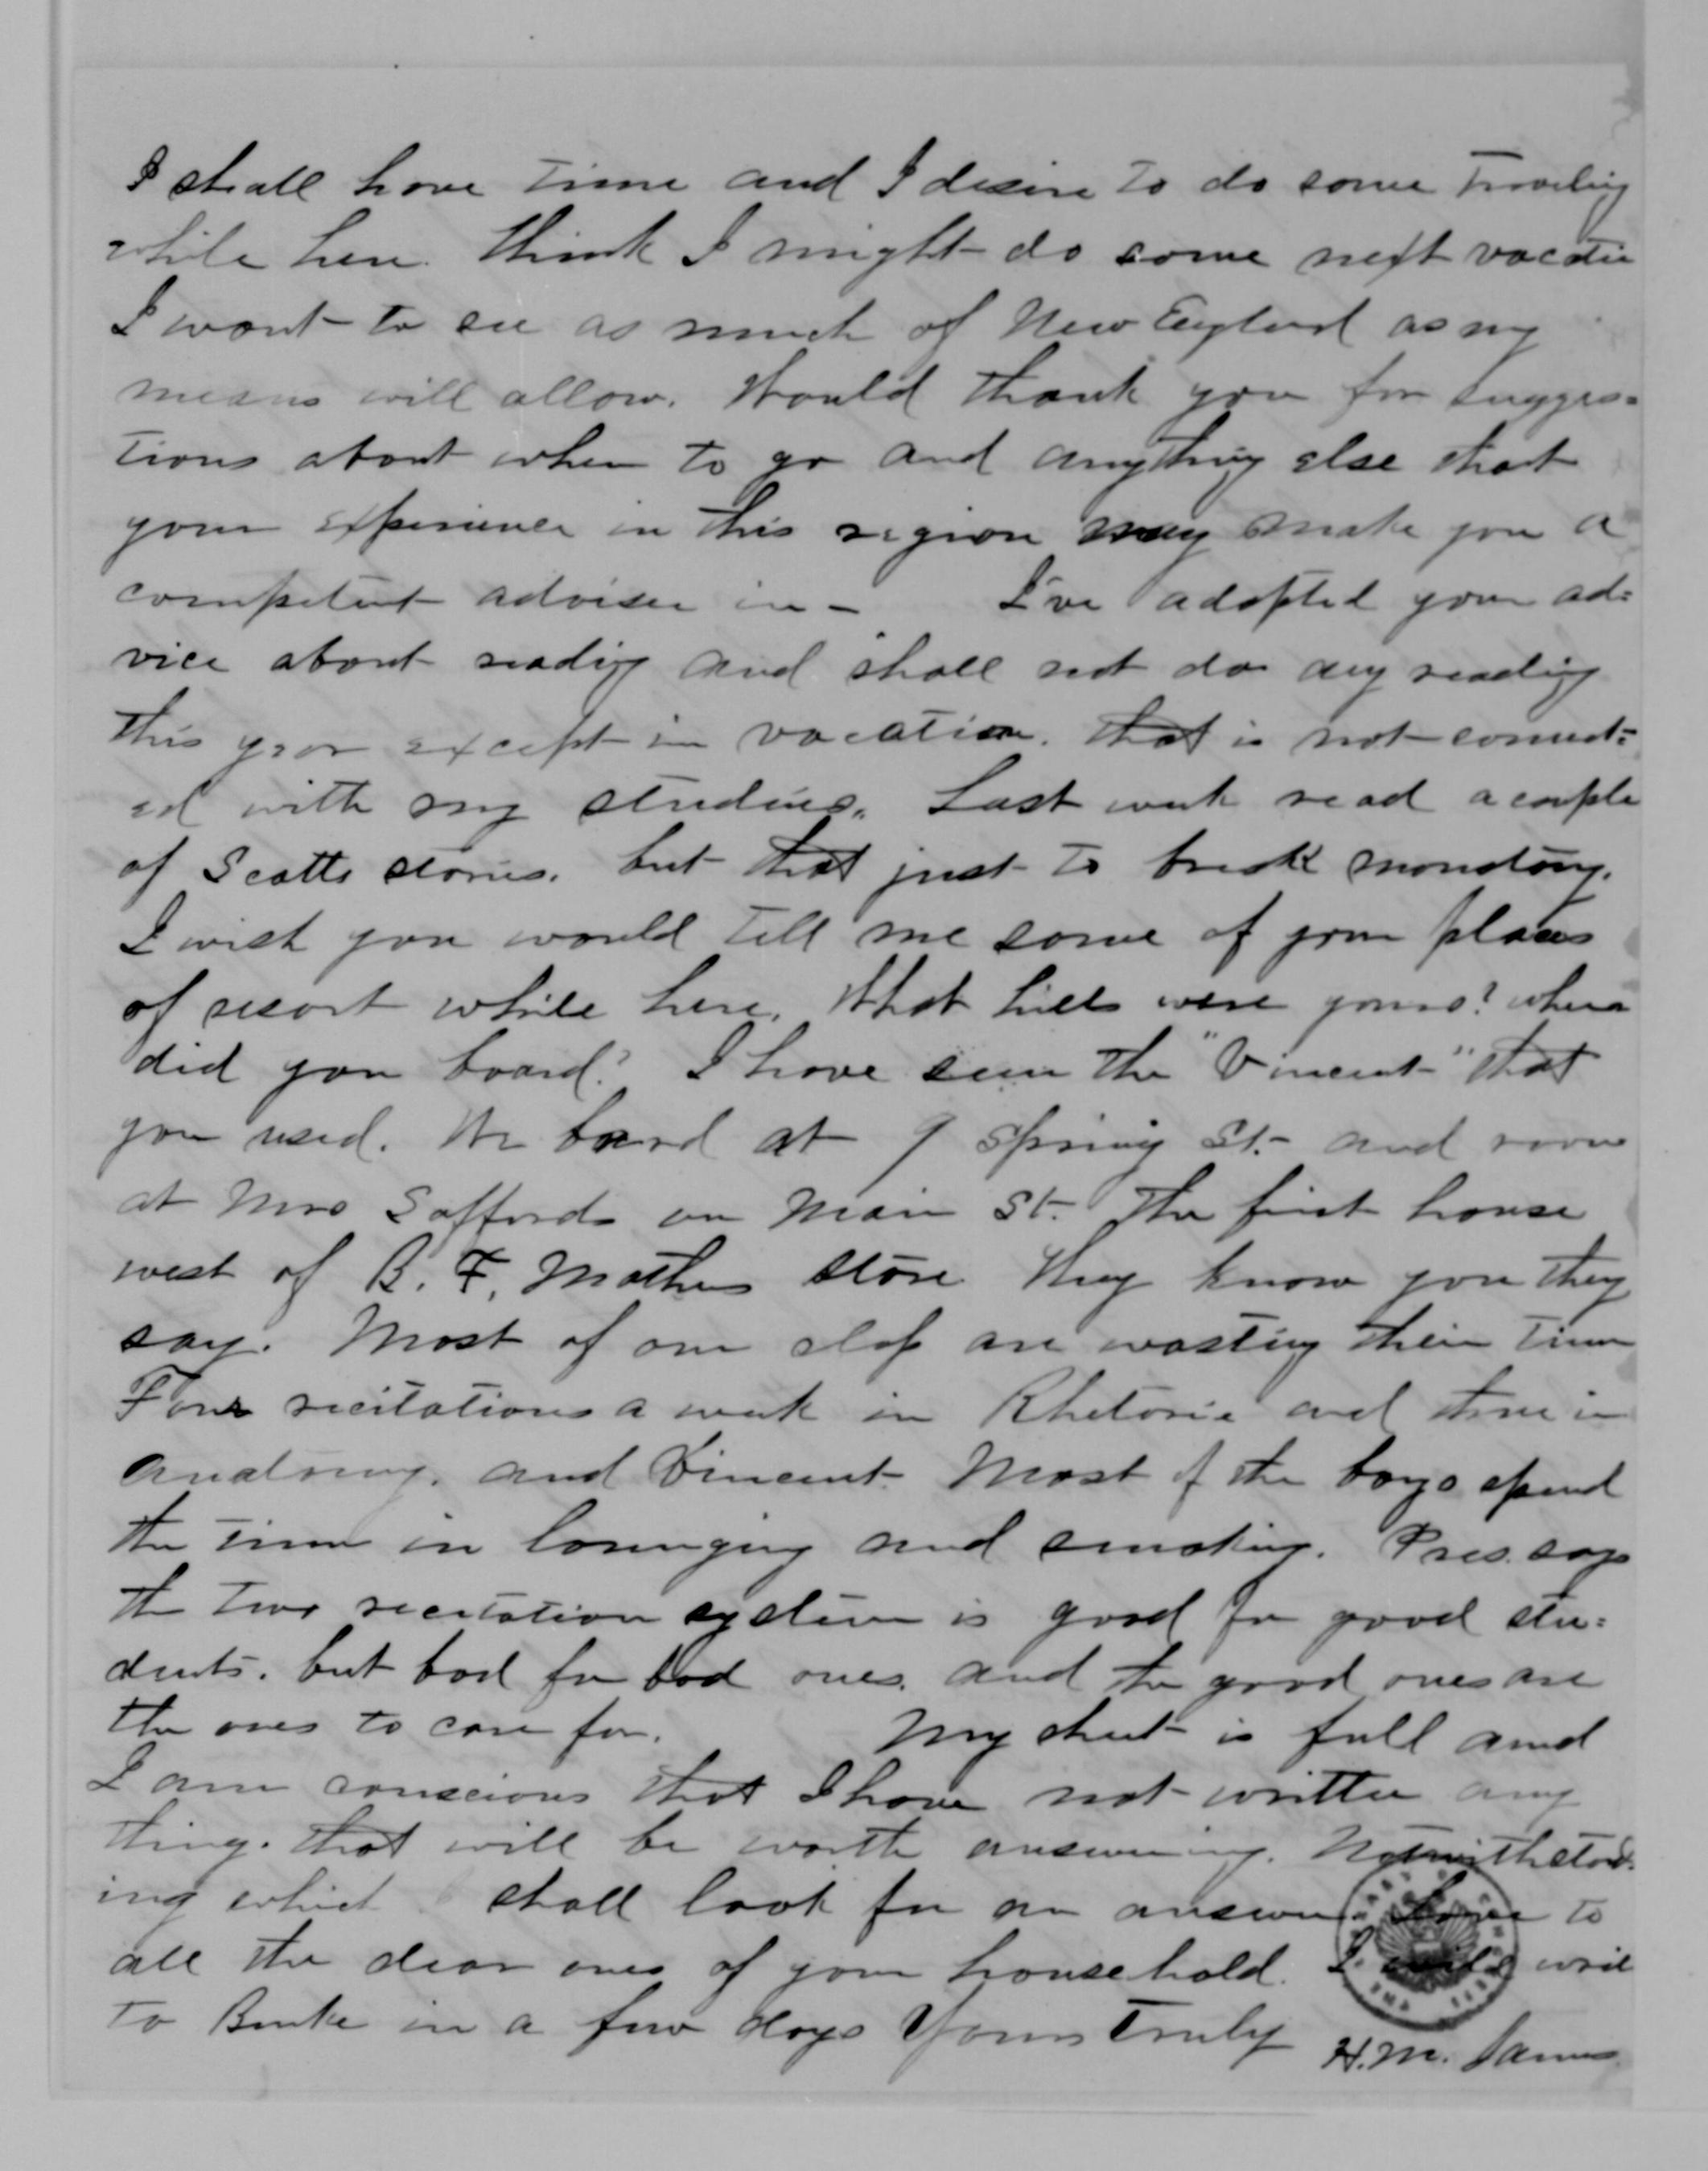 I shall have time and I desire to do some traveling
while here. Think I might do some next vacation
I want to see as much of New England as my
means will allow. Would thank you for sugges=
tions about when to go and anything else that
your experience in this region may make you a
competent adviser in - I've adopted your ad=
vice about reading and shall not do any reading
this year except in vacation. that is not connect=
ed with my studies. Last week read a couple
of Scotts stories. but that just to break monotony.
I wish you would tell me some of your places
of resort while here. What hills were yours? where
did you board? I have seen the "Vincent" that
you used. We board at 9 Spring St. and room
at Mrs Saffords on Main St. The first house
west of B. F. Mathers store. They know you they
say. Most of our class are wasting their time
Four recitations a week in Rhetoric and three in
anatomy. and Vincent. Most of the boys spend
the time in lounging and smoking. Pres. says
the two recitation system is good for good stu=
dents. but bad for bad ones. and the good ones are
the ones to care for. My sheet is full and
I am conscious that I have not written any
thing. that will be worth answering. Notwithstand-
ing which shall look for an answer. Love to
all the dear ones of your household. I will write
to Burke in a few days Yours Truly H. M. James